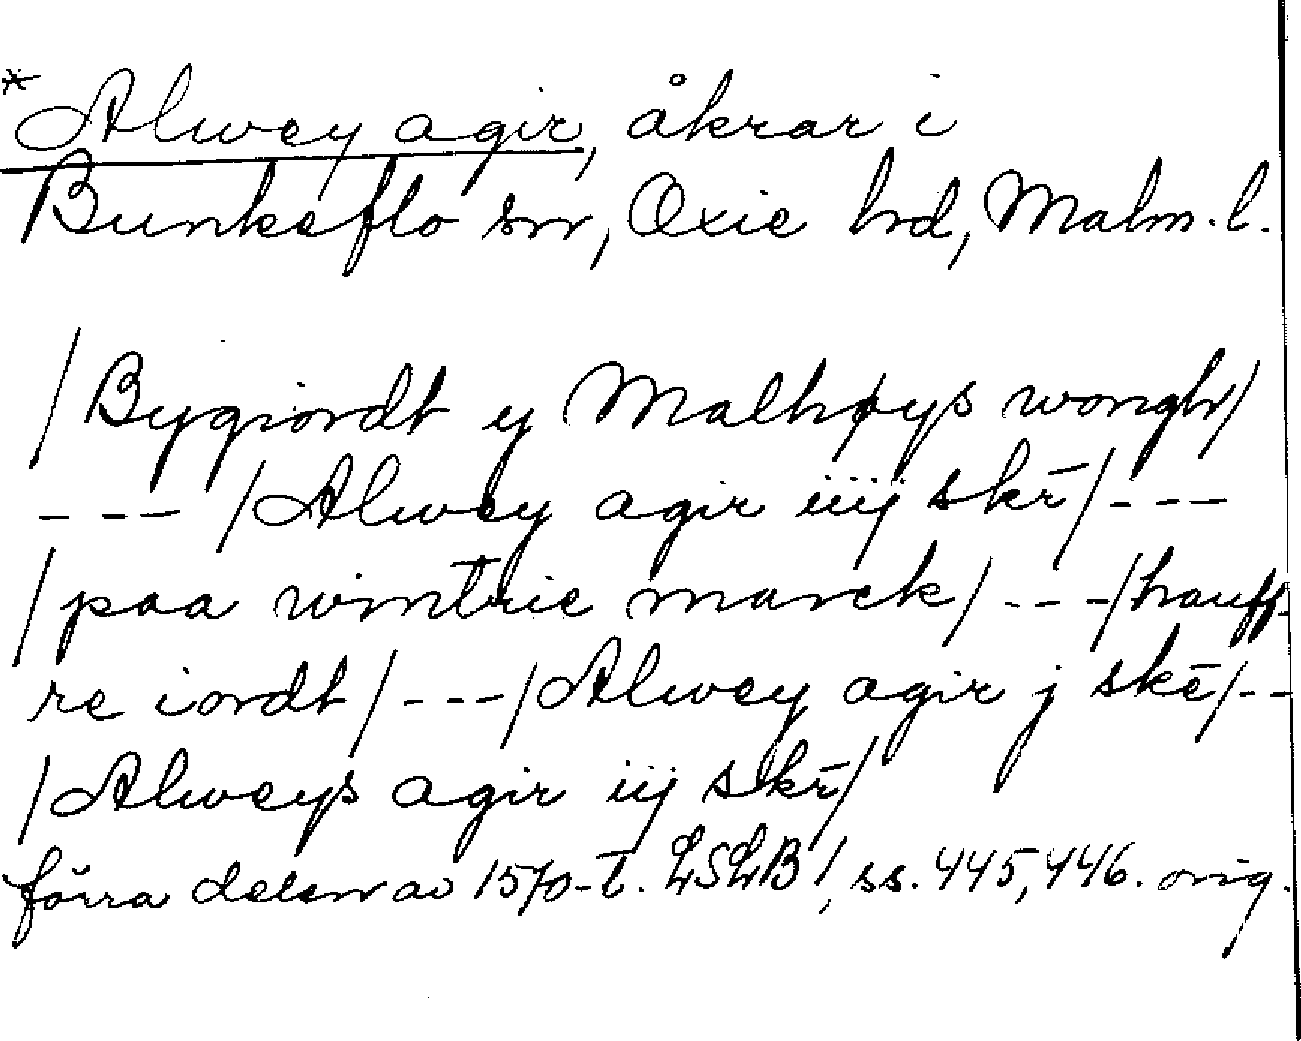 *Alwey agir, åkrar i
Bunkeflo sn, Oxie hd, Malm. l.
/Bygiordt y Malhøys wongh/
--- /Alwey agir iiij skr̄/ ---
/paa wintrie marck/ --- /hauff-
re iordt/ --- /Alwey agir j skē/ --
/Alweys agir iij skr̄/
förra delen av 1570-t. LSLB 1, ss. 445, 446. orig.